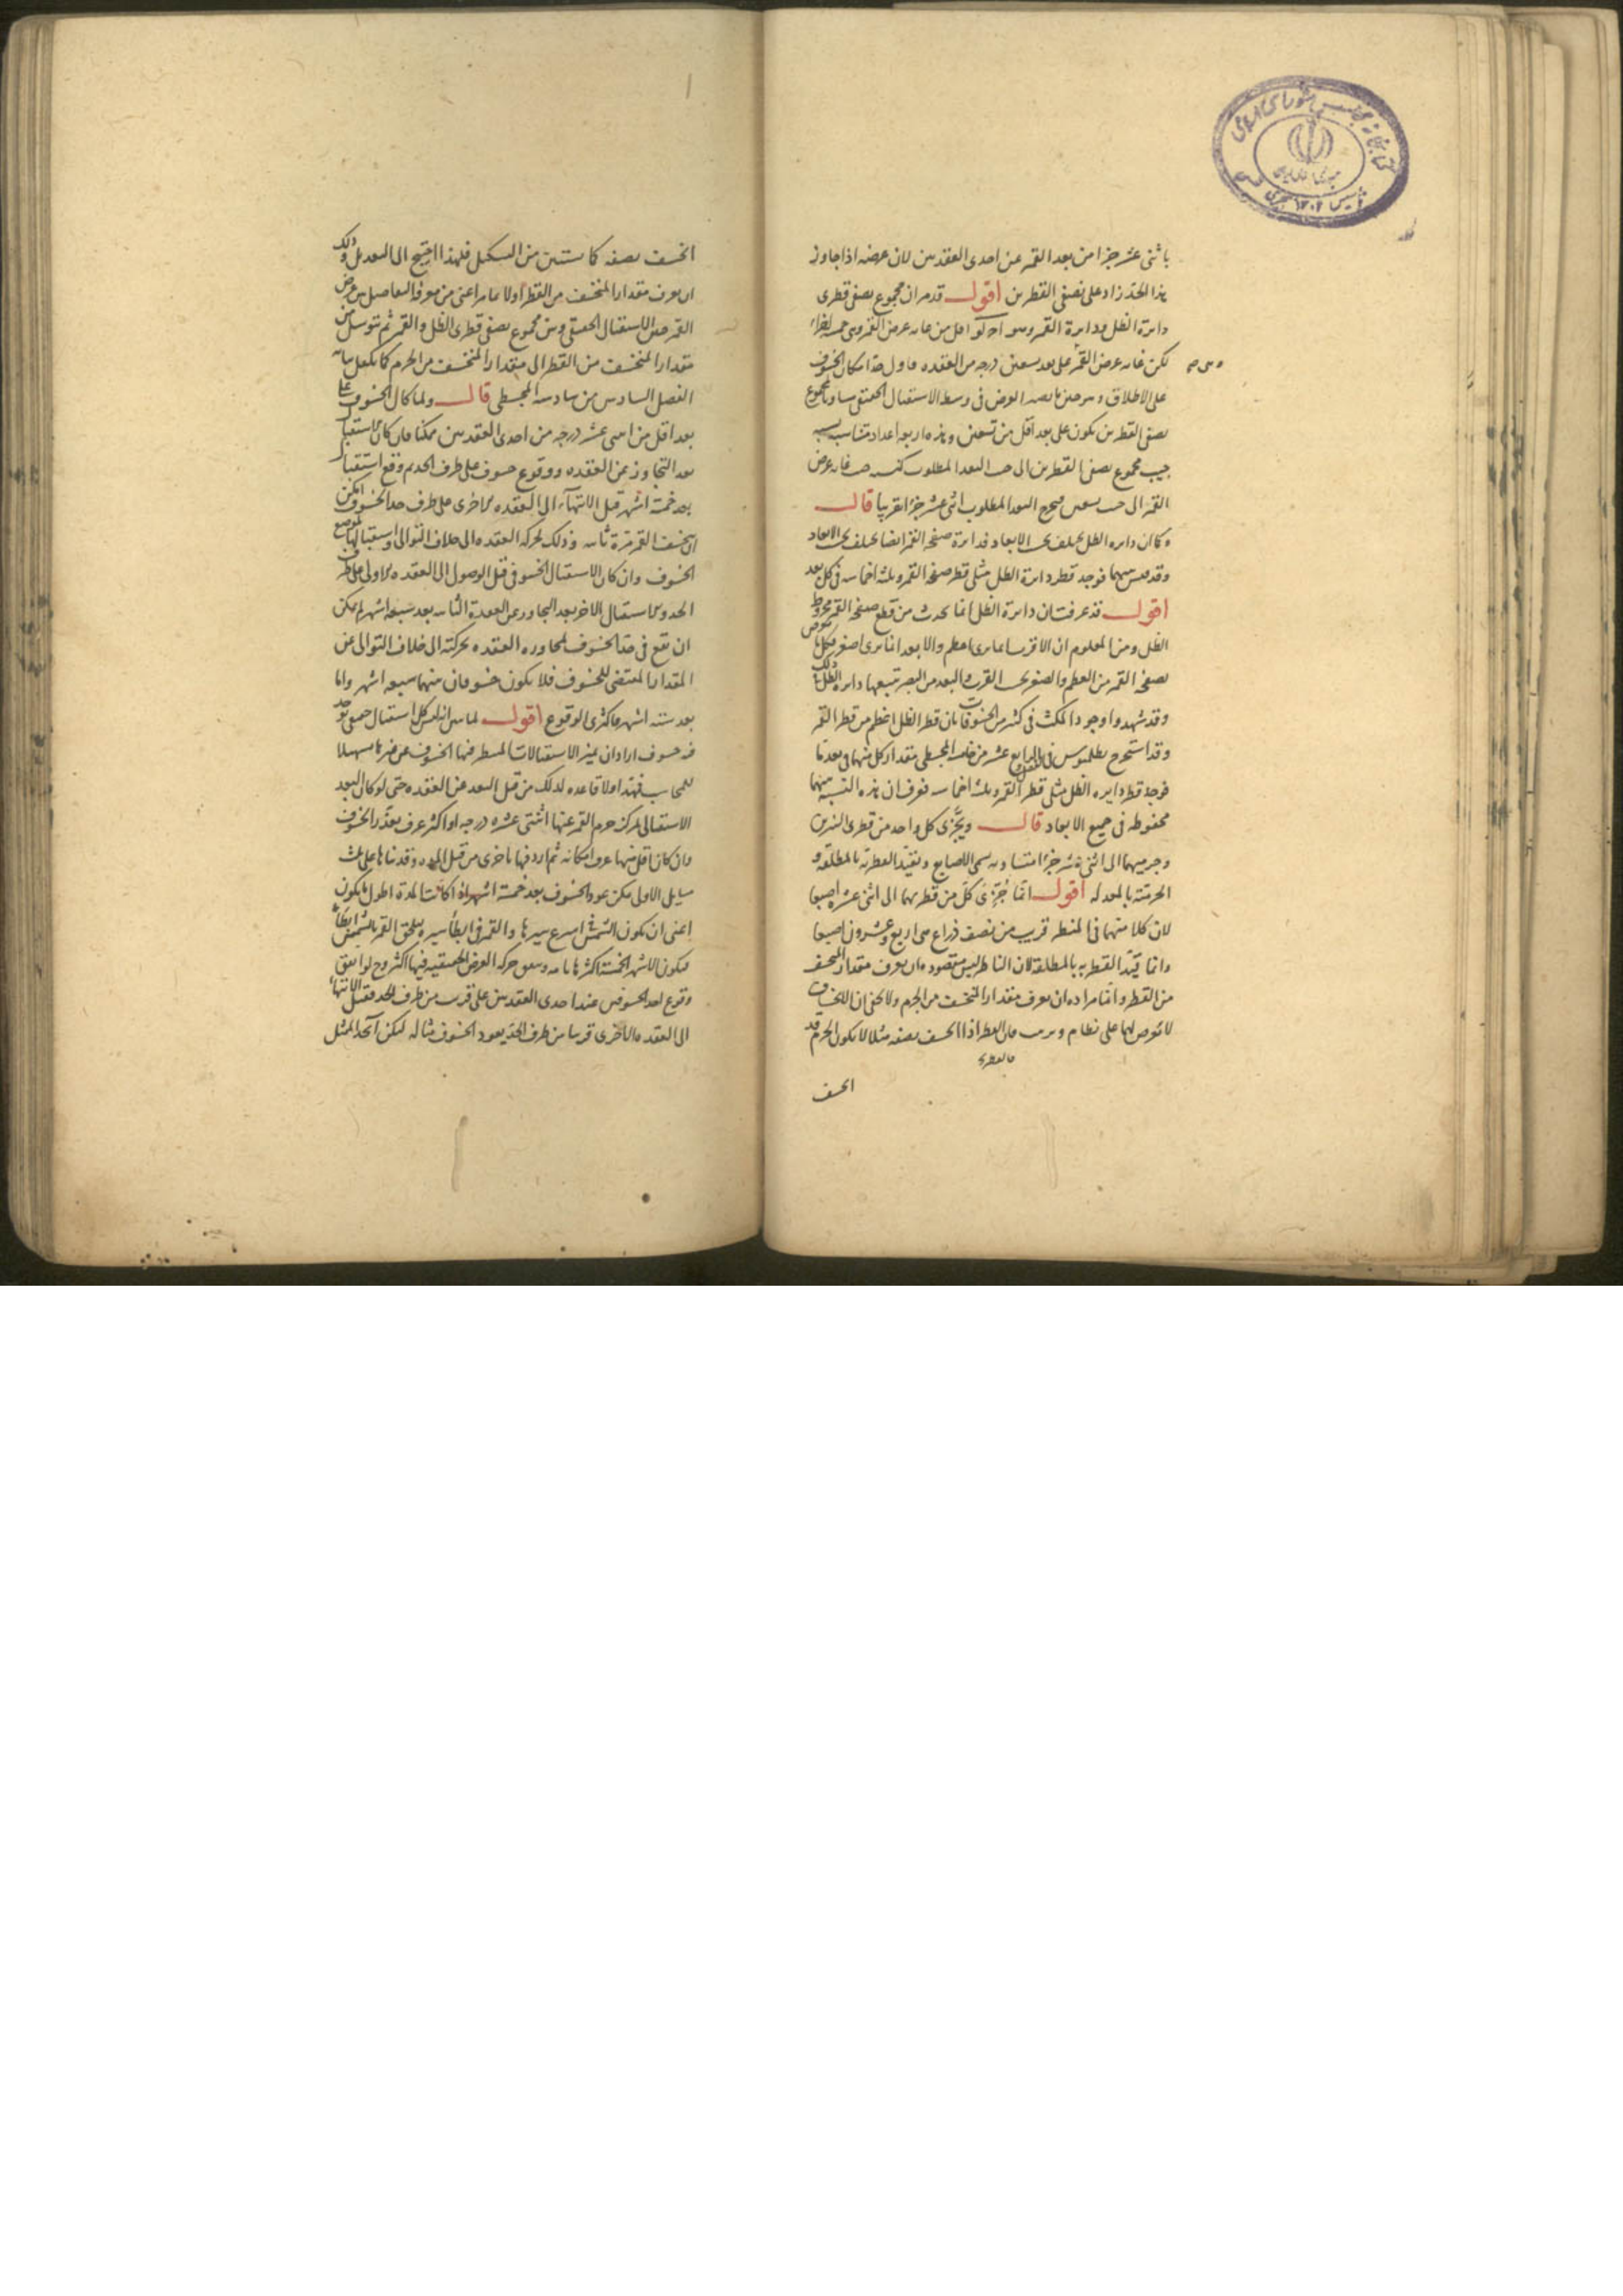 باثنى عشر جزءا من بعد القمر عن احدى العقدتين لان عرضه اذا جاوز
هذا الحد زاد على نصفى القطرين اقول قد مر ان مجموع نصفى قطرى
دائرة الظل ودائرة القمر وهو اقل من غاية عرض القمر وهى خمسة اجزاء
لكن غاية عرض القمر على بعد تسعين درجه من العقده فاول حد امكان الخسوف
على الاطلاق العرض فى وسط الاستقبال الحقيقى مساويا لمجموع
نصفى القطرين يكون على بعد اقل من تسعين وهذه اربعه اعداد متناسبه نسبه
جيب مجموع نصفى القطرين الى جيب البعد المطلوب كنسبه جيب غايه عرض
القمر الى جيب تسعين فيخرج البعد المطلوب اثنى عشر جزءا تقريبا قال
وكما ان دايره الظل يختلف بحسب الابعاد فدائرة صفحه القمر ايضا يختلف بحسب الابعاد
وقد قيس بينهما فوجد قطر دائرة الظل مثلى قطر صفحه القمر وثلثه اخماسه فى كل بعد
اقول قد عرفت ان دائرة الظل انما تحدث من قطع صفحه القمر مخروط
الظل ومن المعلوم ان الاقرب انما يرى اعظم والابعد انما يرى اصغر فكل ما يعرض
لصفحه القمر من العظم والصغر بحسب القرب والبعد من البصر تتبعها دايره الظل فى ذلك
وقد شهدوا وجود المكث فى كثير من الخسوفات بان قطر الظل اعظم من قطر القمر
وقد استخرج بطلميوس فى الفصل الرابع عشر من خامسه المجسطى مقدار كل منهما فى بعد ما
فوجد قطر دايره الظل مثلى قطر القمر وثلثه اخماسه فعرف ان هذه النسبه بينهما
محفوظه فى جميع الابعاد قال ويجزى كل واحد من قطرى النيرين
وجرميهما الى اثنى عشر جزءا متساويه تسمى الاصابع وتقيد القطريه بالمطلقه و
الجرميه بالمعدله اقول انما جزى كل من قطريهما الى اثنى عشر اصبعا
لان كلا منهما فى المنظر قريب من نصف ذراع هى اربع وعشرون اصبعا
وانما قيد القطريه بالمطلقه لان الناظر ليس مقصوده ان يعرف مقدار المنخسف
من القطر وانما مراده ان يعرف مقدار المنخسف من الجرم ولا يخفى ان الانخساف
لا تعرض لهما على نظام وترتيب فان القطر اذا انخسف نصفه مثلا لا يكون الجرم قد
انخسف
انخسف نصفه كما يستبين من الشكل فلهذا احتيج الى التعديل وذلك
ان يعرف مقدار المنخسف من القطر اولا بما مر اعنى من معرفة التفاضل بين عرض
القمر حين الاستقبال الحقيقى وبين مجموع نصفى قطرى الظل والقمر ثم يتوسل من
مقدار المنخسف من القطر الى مقدار المنخسف من الجرم كما تكفل بيانه
الفصل السادس من سادسه المجسطى قال ولما كان الخسوف على
بعد اقل من اثنى عشر درجه من احدى العقدتين ممكنا فان كان استقبال
بعد التجاوز عن العقده ووقوع خسوف على طرف الحد ثم وقع استقبال
بعد خمسه اشهر قبل الانتهاء الى العقده الاخرى على طرف حد الخسوف امكن
ان ينخسف القمر مرة ثانيه وذلك لحركه العقده الى خلاف التوالى واستقبالها موضع
الخسوف وان كان الاستقبال الخسوفى قبل الوصول الى العقده الاولى على طرف
الحد والاستقبال الاخر بعد التجاوز عن العقدة الثانيه بعد سبعه اشهر لم يمكن
ان تقع فى حد الخسوف لمجاوزه العقده بحركته الى خلاف التوالى عن
المقدار المقتضى للخسوف فلا يكون خسوفان بينهما سبعه اشهر واما
بعد سته اشهر فاكثرى الوقوع اقول لما بين انه ليس كل استقبال حقيقى توجد
فيه خسوف اراد ان يميز الاستقبالات المنتظر فيها الخسوف عن غيرها تسهيلا
للمحاسب فمهد اولا قاعده لذلك من قبل البعد عن العقده حتى لو كان البعد
الاستقبالى لمركز جرم القمر عنها اثنتى عشره درجه او اكثر عرف تعذر الخسوف
وان كان اقل منها عرف امكانه ثم اردفها باخرى من قبل المده وقد بناها على ثلث
مسايل الاولى يمكن عود الخسوف بعد خمسه اشهر اذا كانت المدة اطول ما يكون
اعنى ان يكون الشمس فى اسرع سيرها والقمر فى ابطأ سيره يلحق القمر بالشمس ابطأ
فيكون الاشهر الخمسه اكثرها تامه ويتفق حركه العرض الحقيقيه فيها اكثر وح لو اتفق
وقوع احد الخسوفين عند احدى العقدتين على قرب من طرف الحد فقبل الانتهاء
الى العقده الاخرى قريبا من طرف الحد يعود الخسوف مثاله ليكن آ بحد الممثل